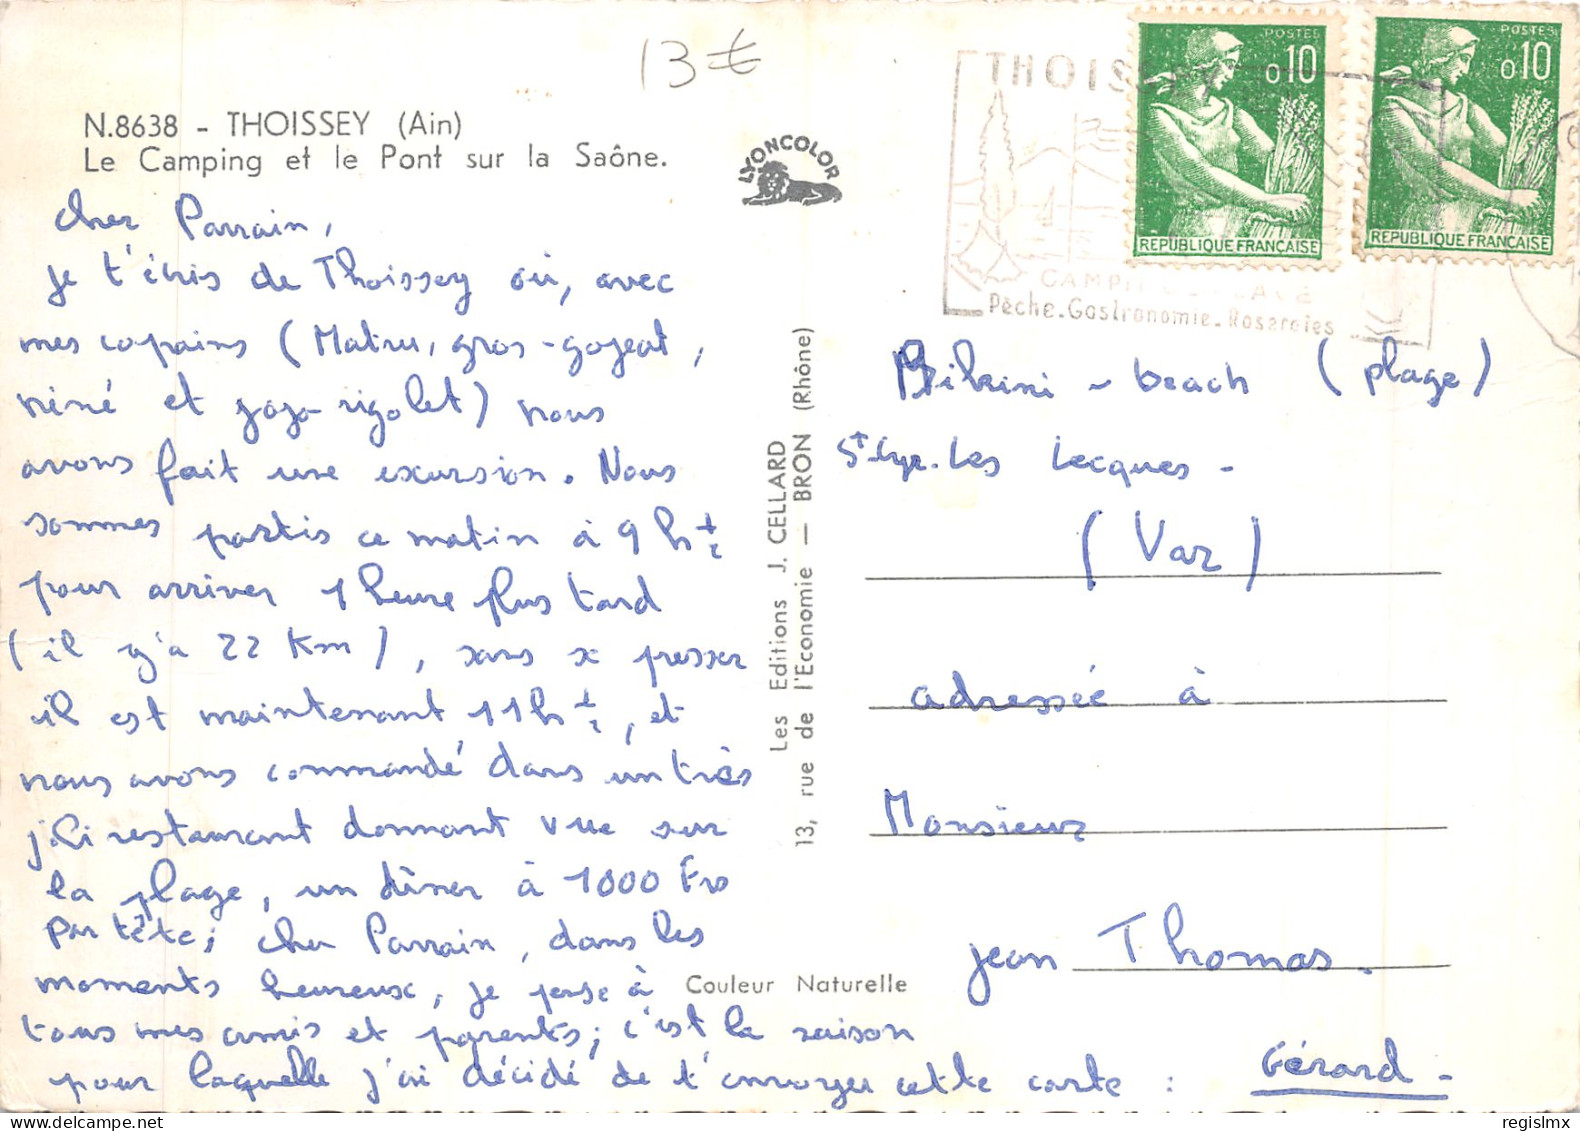 13 €
N.8638 - THOISSEY (Ain)
Le Camping et le Pont sur la Saône.
LYONCOLOR
THOISSEY
CAMPING
Pêche.Gastronomie.Roseraies
POSTES
0,10
REPUBLIQUE FRANÇAISE
POSTES
0,10
REPUBLIQUE FRANÇAISE
cher Parrain,
je t'écris de Thoissey où, avec
mes copains (Matru, gros-gojeat,
néné et gogo-rigolet) nous
avons fait une excursion. Nous
sommes partis ce matin à 9 h ½
pour arriver 1 heure plus tard
(il y'a 22 Km), sans se presser
il est maintenant 11h ½, et
nous avons commandé dans un très
joli restaurant donnant vue sur
la plage, un dîner à 1000 Frs
par tête; cher Parrain, dans les
moments heureux, je pense à
tous mes amis et parents; c'est la raison
pour laquelle j'ai décidé de t'envoyer cette carte :
Gérard -
Les Editions J. CELLARD
13, rue de l'Economie — BRON (Rhône)
Couleur Naturelle
Bikini - beach (plage)
St Cyr. Les Lecques -
(Var)
adressée à
Monsieur
jean Thomas.
regislmx